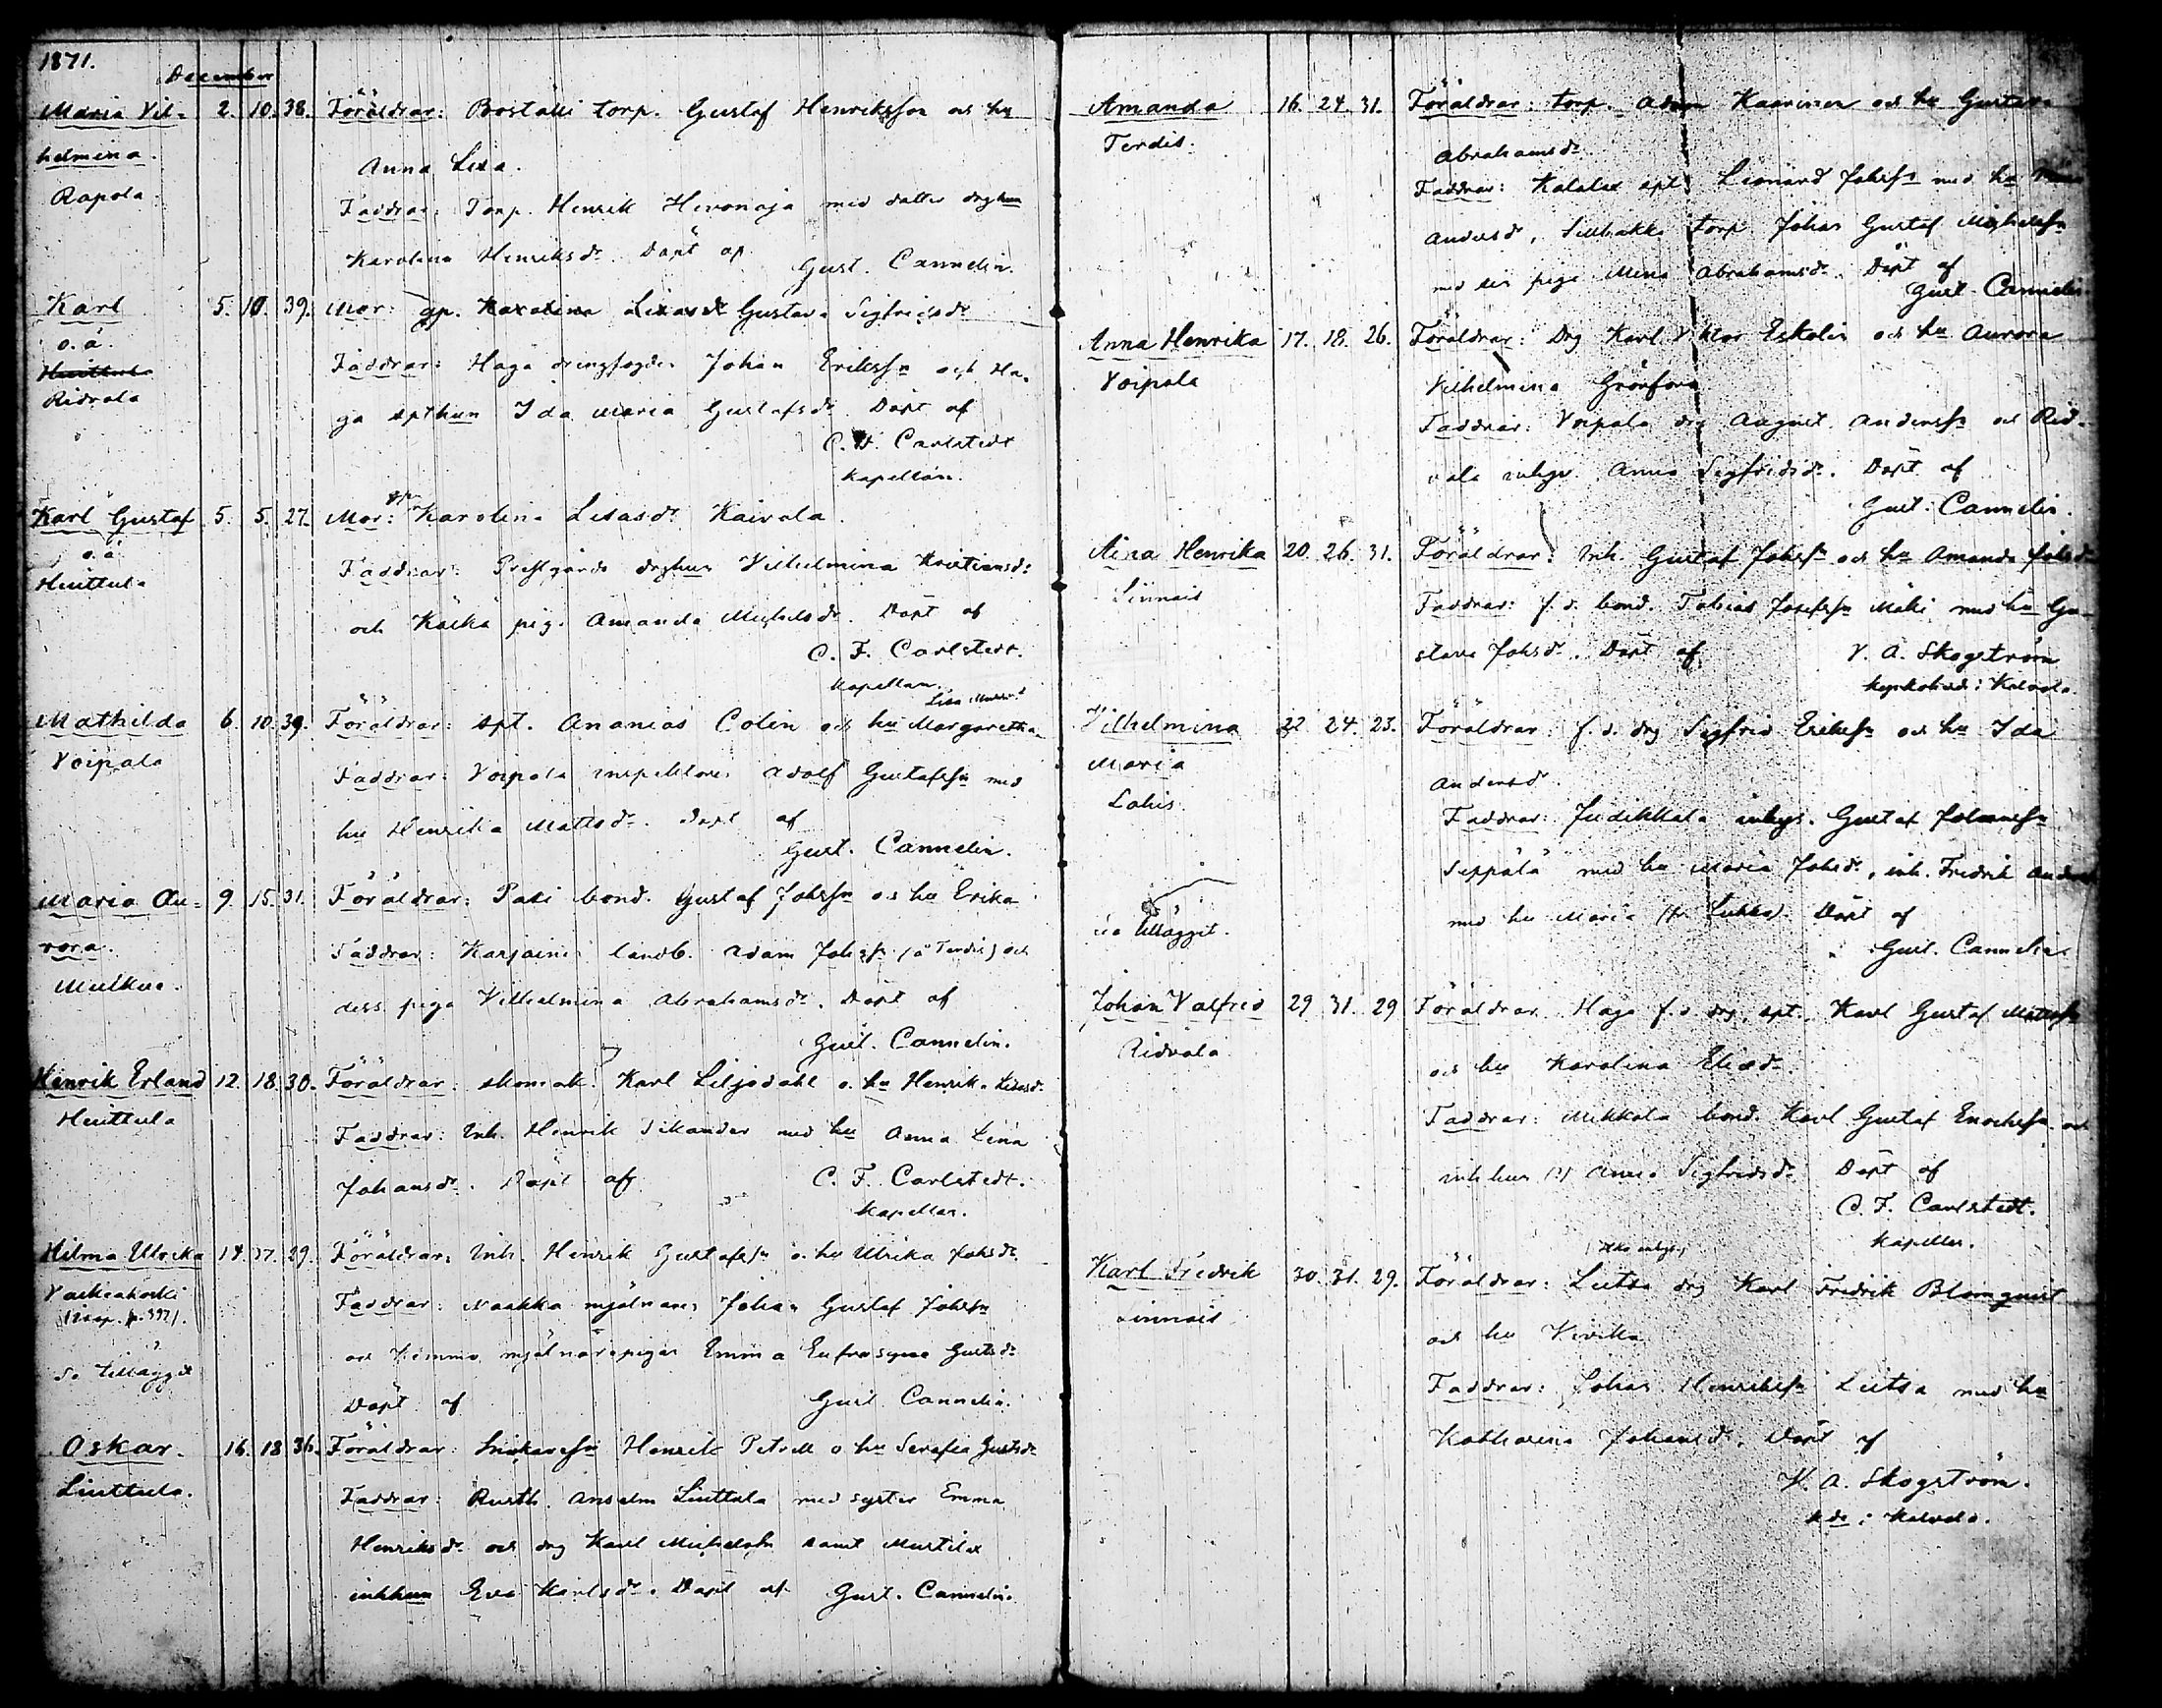 1871.
December
Maria Vil- 2. 10. 38. Föräldrar: Boställi torp. Gustaf Henriksson och hu
helmina. Anna Lisa.
Rapola. Faddrar: Torp. Henrik Hevonoja med datter drghun
Karolina Henriksdr. Döpt af
Gust. Cannelin.
Karl 5. 10. 39. Mor: gp. Karolina Lisasdr Gustava Sigfridsdr
o.ä. Faddrar: Haga drengfogden Johan Erikssn och Ha-
Huittula
Ridvala ga spthun Ida Maria Gustafsdr. Döpt af
C. F. Carlstedt
Kapellan.
Karl Gustaf 5. 5. 27. Mor: gp. Karolina Lisasdr Kaivola.
o.ä. Faddrar: Prestgårds drghun Vilhelmina Kristiansdr
Huittula och Käikä piga Amanda Michelsdr. Döpt af
C. F. Carlstedt.
Kapellan.
Lisa
Mathilda 6. 10. 39. Föräldrar: spt. Ananias Colin och hu Margaretha
Voipala Faddrar: Voipala inspektoren Adolf Gustafssn med
hu Henrika Mattsdr. Döpt af
Gust. Cannelin.
Maria Au- 9. 15. 31. Föräldrar: Pati bond. Gustaf Johssn och hu Erika
rora. Faddrar: Karjainen landb. Adam Johssn (ä Terdis) och
Mulkua. dess piga Vilhelmina Abrahamsdr. Döpt af
Gust. Cannelin.
Henrik Erland 12. 18. 30. Föräldrar: skomak. Karl Liljedahl o. hu Henrika Lisasdr.
Huittula Faddrar: Inh. Henrik Sikander med hu Anna Lena
Johansdr. Döpt af C. F. Carlstedt.
Kapellan.
Hilma Ulrika 14. 17. 29. Föräldrar: Inh. Henrik Gustafssn o. hu Ulrika Johsdr.
Vachakoski Faddrar: Naakka mjölnaren Johan Gustaf Johssn
och Kemmo mjölnarepigan Emma Eufrosyne Gustsdr
se tillägget Döpt af Gust Cannelin.
Oskar. 16. 18. 36. Föräldrar: Henrik Petrell o hu Serafia Gustsdr
Liuttula. Faddrar: Rusth. Anselm Liuttula med syster Emma
Henriksdr och drg Karl Michelssn samt Murtila
inhhun Eva Karlsdr. Döpt af Gust. Cannelin.
Amanda 16. 24. 31. Föräldrar: torp. Adam Kaarinen och hu Gustava
Terdis. Abrahamsdr
Faddrar: Kalalax spt. Leonard Johssn med hu
Andersd, torp Johan Gustaf Michelssn
med sin piga Mina Abrahamsdr. Döpt af
Gust Cannelin.
Anna Henrika 17. 18. 26. Föräldrar: Drg Karl Viktor Eskolin och hu Aurora
Voipala Vilhelmina Grönfors
Faddrar: Voipala drg August Anderssn och Rid-
vala inhys. Anna Sigfridsdr. Döpt af
Gust. Cannelin.
Aina Henrika 20. 26. 31. Föräldrar: Inh. Gustaf Johssn och hu Amanda Johsdr
Linnais Faddrar: f. d. bond. Tobias Josefssn Mäki med hu Gu-
stava Johsdr. Döpt af V. A. Skogström
kyrkoherd i Kalvola.
Vilhelmina 22 24. 23. Föräldrar: f. d. drg Sigfrid Erikssn och hu Ida
Maria Andersd
Lahis. Faddrar: Judikkala inhys. Gustaf Johanssn
Seppälä med hu Maria Johsdr, inh. Fredrik
se tillägget. med hu Maria (fr Lukka). Döpt af
Gust. Cannelin
Johan Valfrid 29 31. 29 Föräldrar. Haga f. d. drg, spt. Karl Gustaf Mattssn
Ridvala. och hu Karolina Eliædr.
Faddrar: Mikkola bond. Karl Gustaf Enochssn och
inhhun (?) Anna Sigfridsdr. Döpt af
C. F. Carlstedt.
Kapellan.
Karl Fredrik 30. 31. 29. Föräldrar: Lutsa drg Karl Fredrik Blomqvist
Linnais och hu Vivika
Faddrar: Johan Henrikssn Lutsa med hu
Katharina Johansdr. Döpt af
V. A. Skogström.
khde i Kalvola.